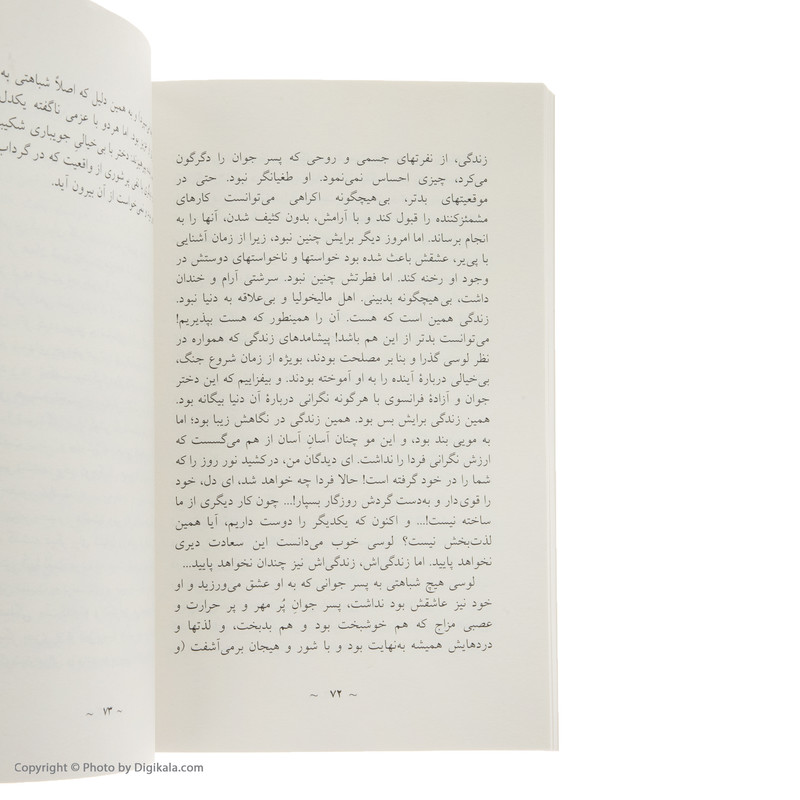 زندگی، از نفرتهای جسمی و روحی که پسر جوان را دگرگون
می‌کرد، چیزی احساس نمی‌نمود. او طغیانگر نبود. حتی در
موقعیتهای بدتر، بی‌هیچگونه اکراهی می‌توانست کارهای
مشمئزکننده را قبول کند و با آرامش، بدون کثیف شدن، آنها را به
انجام برساند. اما امروز دیگر برایش چنین نبود، زیرا از زمان آشنایی
با پی‌یر، عشقش باعث شده بود خواستها و ناخواستهای دوستش در
وجود او رخنه کند. اما فطرتش چنین نبود. سرشتی آرام و خندان
داشت، بی‌هیچگونه بدبینی. اهل مالیخولیا و بی‌علاقه به دنیا نبود.
زندگی همین است که هست. آن را همینطور که هست بپذیریم!
می‌توانست بدتر از این هم باشد! پیشامدهای زندگی که همواره در
نظر لوسی گذرا و بنا بر مصلحت بودند، بویژه از زمان شروع جنگ،
بی‌خیالی دربارهٔ آینده را به او آموخته بودند. و بیفزاییم که این دختر
جوان و آزادهٔ فرانسوی با هرگونه نگرانی دربارهٔ آن دنیا بیگانه بود.
همین زندگی برایش بس بود. همین زندگی در نگاهش زیبا بود؛ اما
به مویی بند بود، و این مو چنان آسانِ آسان از هم می‌گسست که
ارزش نگرانی فردا را نداشت. ای دیدگان من، درکشید نور روز را که
شما را در خود گرفته است! حالا فردا چه خواهد شد، ای دل، خود
را قوی‌دار و به‌دست گردش روزگار بسپار!... چون کار دیگری از ما
ساخته نیست!... و اکنون که یکدیگر را دوست داریم، آیا همین
لذت‌بخش نیست؟ لوسی خوب می‌دانست این سعادت دیری
نخواهد پایید. اما زندگی‌اش، زندگی‌اش نیز چندان نخواهد پایید...
لوسی هیچ شباهتی به پسر جوانی که به او عشق می‌ورزید و او
خود نیز عاشقش بود نداشت، پسر جوانِ پُر مهر و پر حرارت و
عصبی مزاج که هم خوشبخت بود و هم بدبخت، و لذتها و
دردهایش همیشه به‌نهایت بود و با شور و هیجان برمی‌آشفت (و
~ ۷۲ ~
و به همین دلیل که اصلاً شباهتی به
بود. اما هر دو با عزمی ناگفته یکدل
دختر با بی‌خیالیِ جویباری شکیبا
پرشوری از واقعیت که در گرداب
خواست از آن بیرون آید.
~ ۷۳ ~
Copyright © Photo by Digikala.com